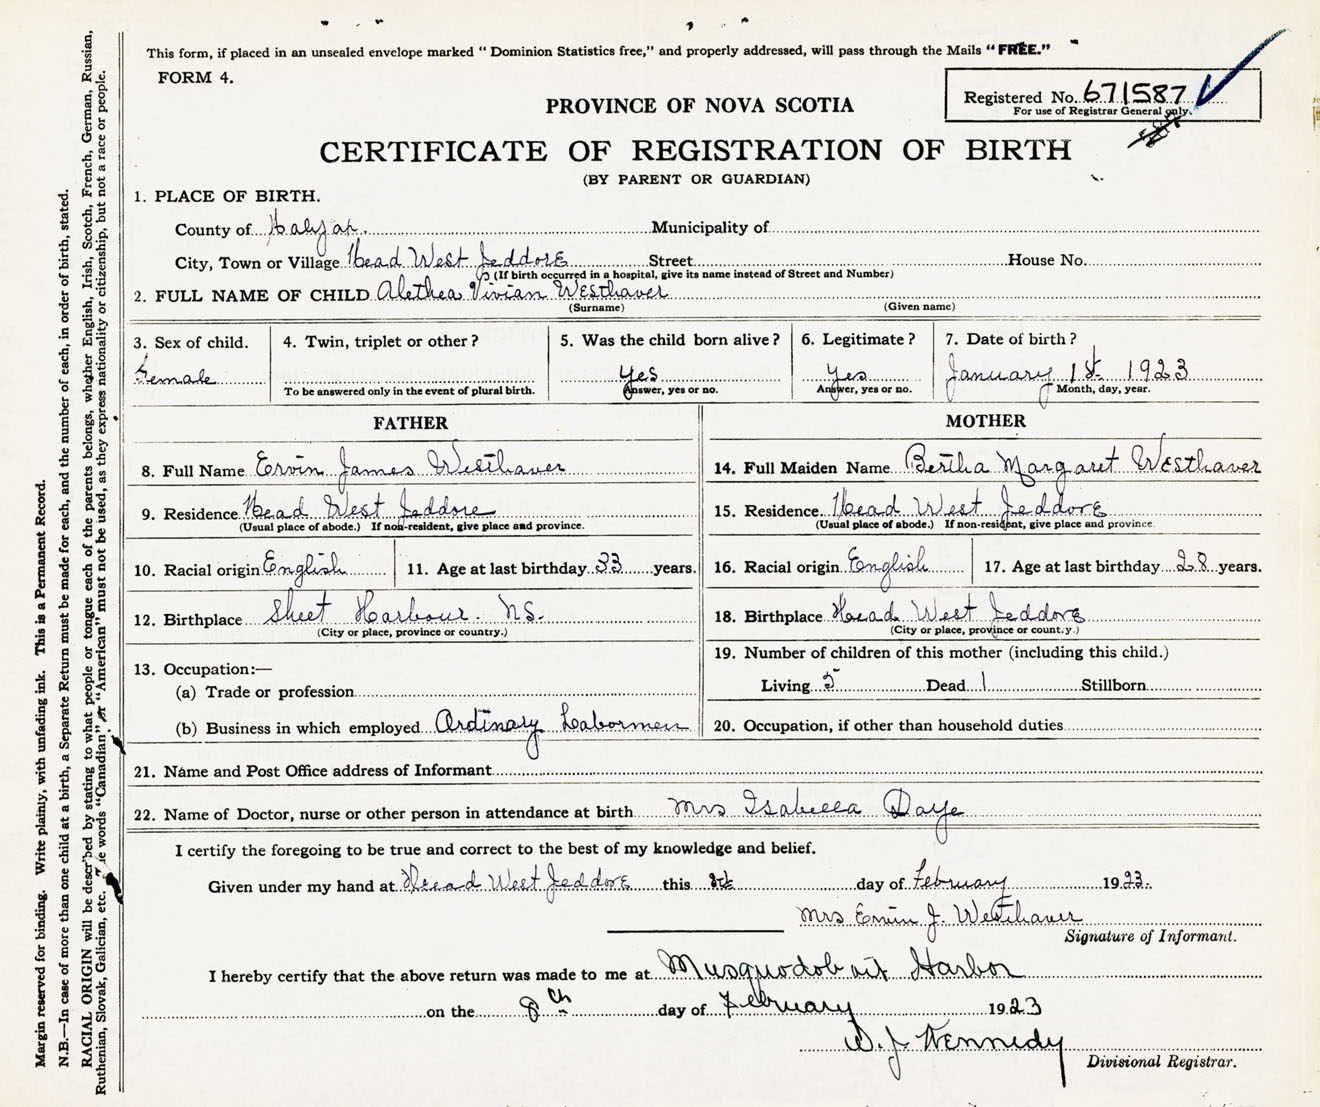 This form, if placed in an unsealed envelope marked "Dominion Statistics free," and properly addressed, will pass through the Mails "FREE."
FORM 4.
Registered No. 671587
For use of Registrar General only.
PROVINCE OF NOVA SCOTIA
CERTIFICATE OF REGISTRATION OF BIRTH
(BY PARENT OR GUARDIAN)
1. PLACE OF BIRTH.
County of Halifax. Municipality of
City, Town or Village Head West Jeddore Street House No.
(If birth occurred in a hospital, give its name instead of Street and Number)
2. FULL NAME OF CHILD Alethea Vivian Westhaver
(Surname) (Given name)
3. Sex of child. 4. Twin, triplet or other? 5. Was the child born alive? 6. Legitimate? 7. Date of birth?
Female yes yes January 1st 1923
To be answered only in the event of plural birth. Answer, yes or no. Answer, yes or no. Month, day, year.
FATHER MOTHER
8. Full Name Ervin James Westhaver 14. Full Maiden Name Bertha Margaret Westhaver
9. Residence Head West Jeddore 15. Residence. Head West Jeddore
(Usual place of abode.) If non-resident, give place and province. (Usual place of abode.) If non-resident, give place and province.
10. Racial origin English 11. Age at last birthday 33 years. 16. Racial origin English 17. Age at last birthday 28 years.
12. Birthplace Sheet Harbour. NS. 18. Birthplace Head West Jeddore
(City or place, province or country.) (City or place, province or country.)
19. Number of children of this mother (including this child.)
13. Occupation:—
(a) Trade or profession Living 5 Dead 1 Stillborn
(b) Business in which employed Ordinary Labormen 20. Occupation, if other than household duties
21. Name and Post Office address of Informant
22. Name of Doctor, nurse or other person in attendance at birth Mrs Isabella Daye
I certify the foregoing to be true and correct to the best of my knowledge and belief.
Given under my hand at Head West Jeddore this day of February 1923.
Mrs Ervin J. Westhaver
Signature of Informant.
I hereby certify that the above return was made to me at Musquodoboit Harbor
on the 8th day of February 1923
W. J Kennedy
Divisional Registrar.
Margin reserved for binding. Write plainly, with unfading ink. This is a Permanent Record.
N.B.—In case of more than one child at a birth, a Separate Return must be made for each, and the number of each, in order of birth, stated.
RACIAL ORIGIN will be described by stating to what people or tongue each of the parents belongs, whether English, Irish, Scotch, French, German, Russian,
Ruthenian, Slovak, Galician, etc. words "Canadian" or "American" must not be used, as they express nationality or citizenship, but not a race or people.